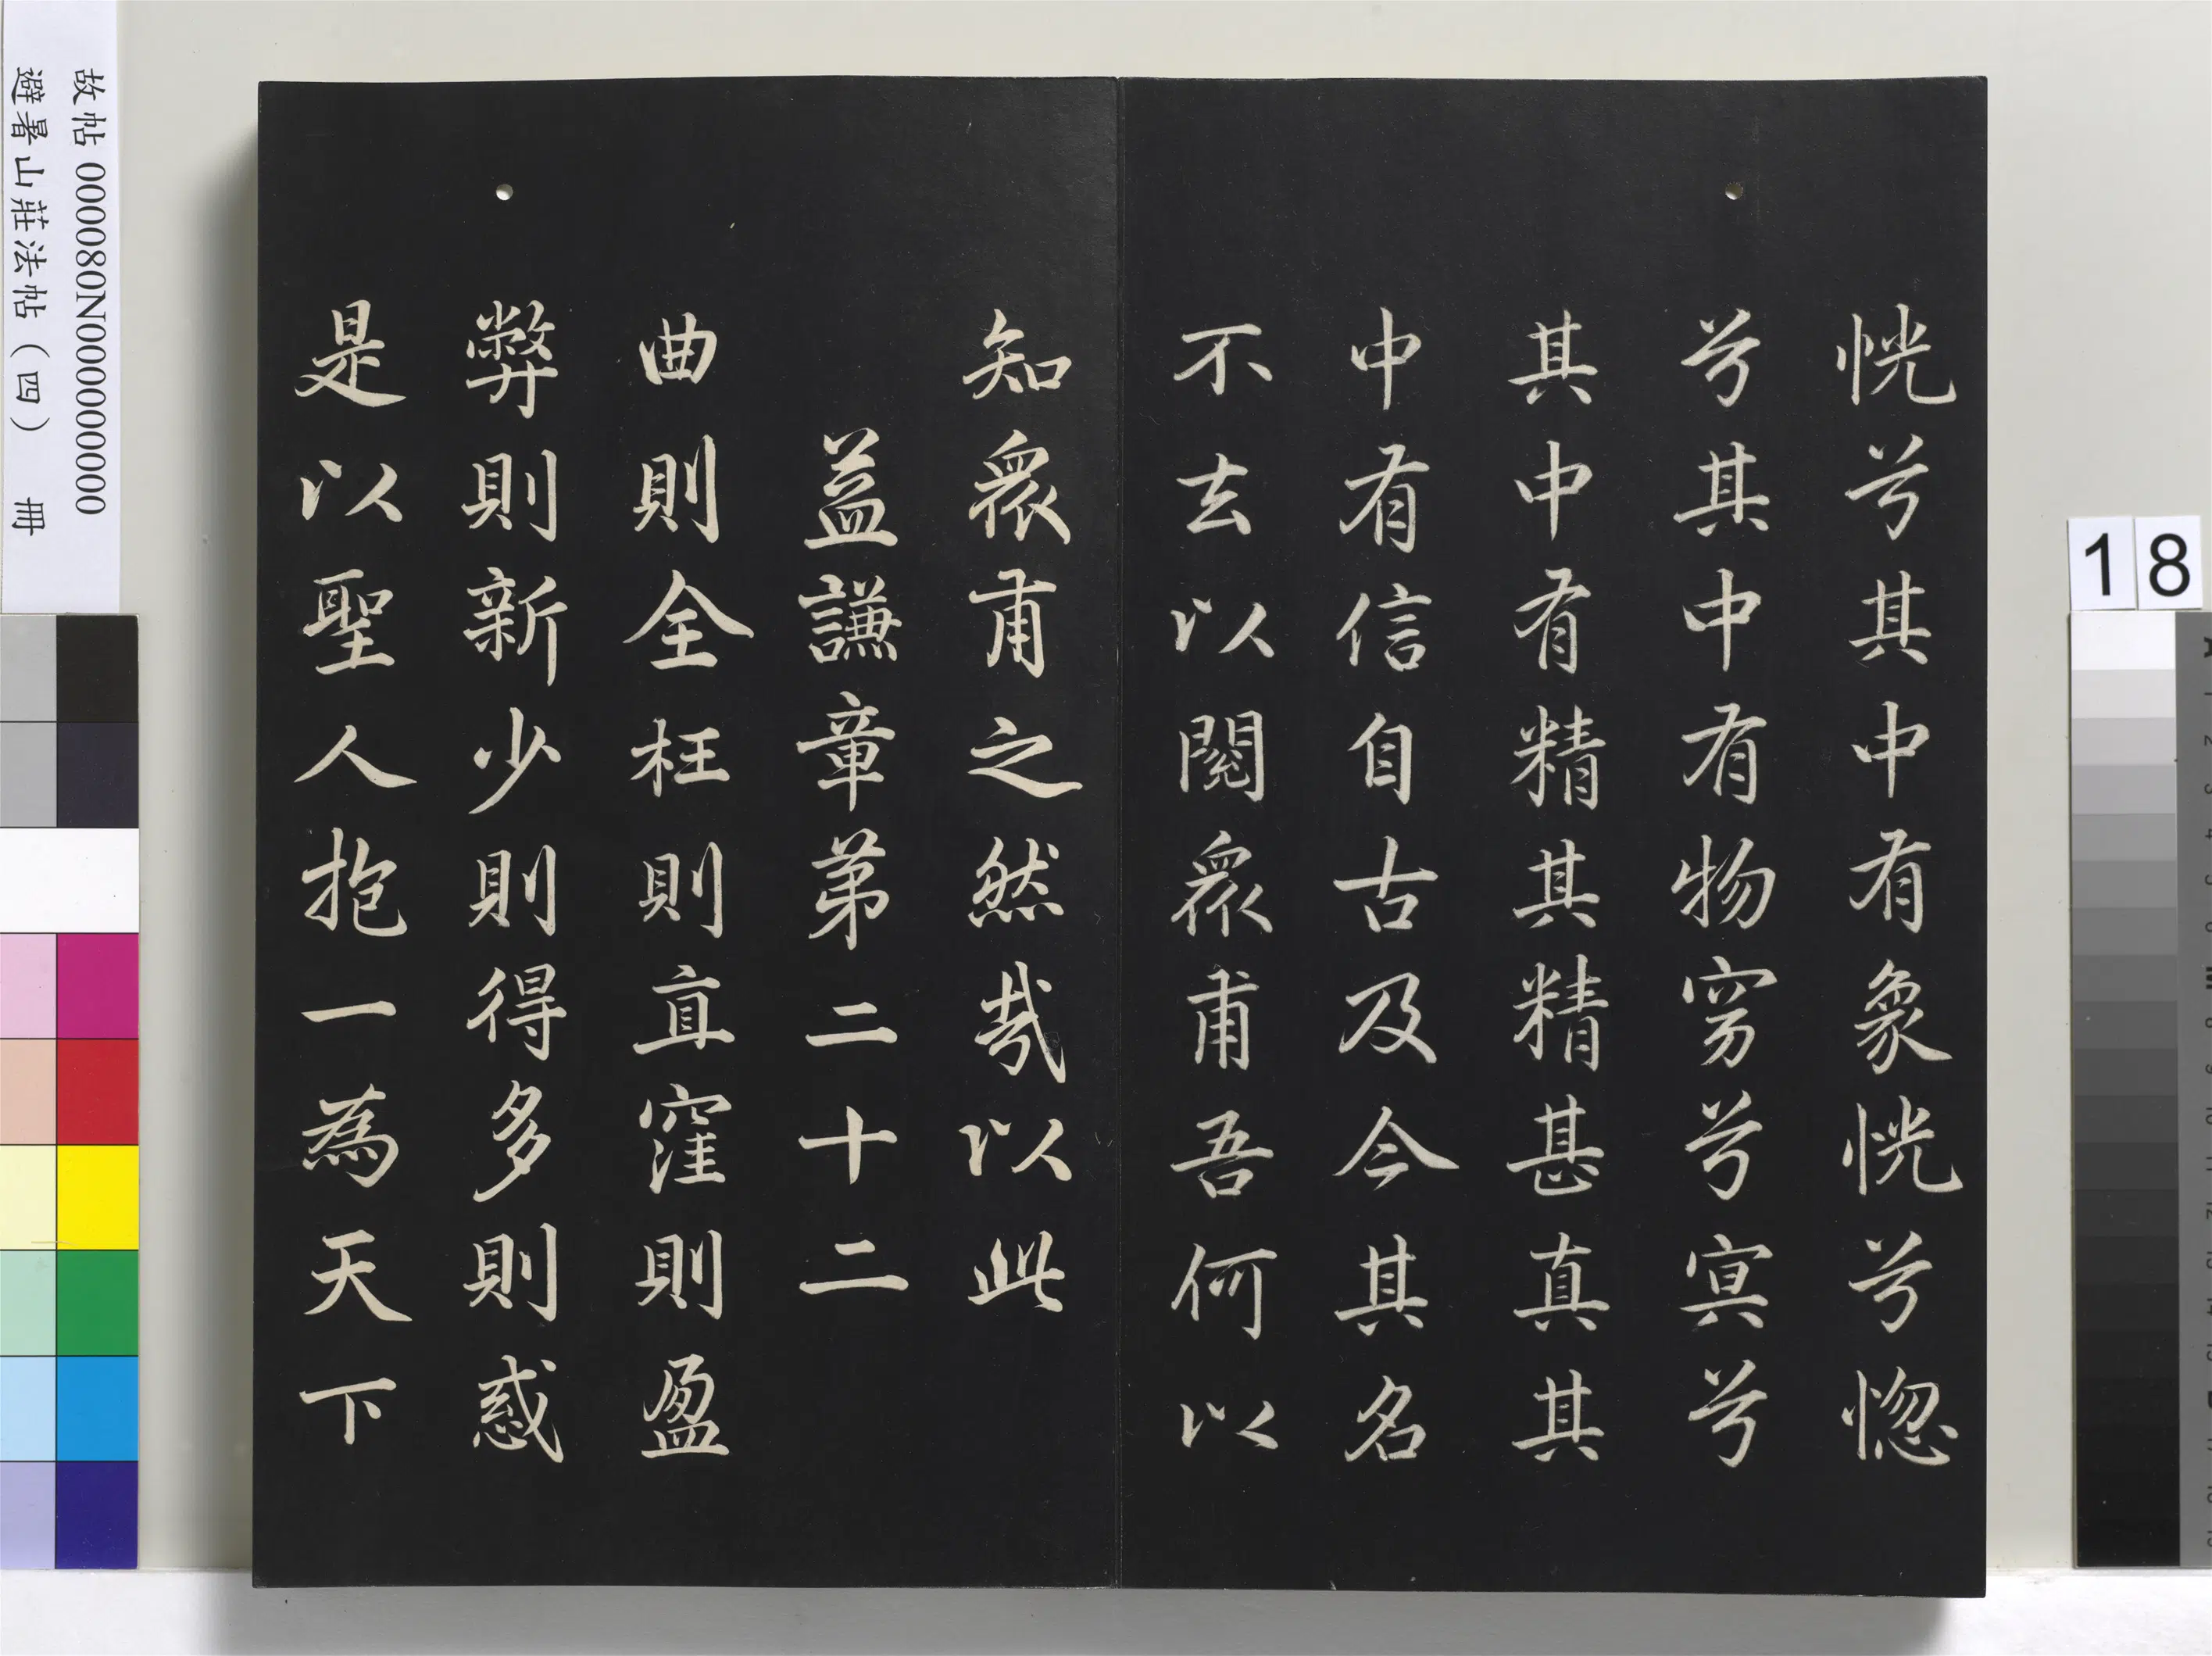 恍兮其中有象恍兮惚
兮其中有物窈兮冥兮
其中有精其精甚真其
中有信自古及今其名
不去以閱衆甫吾何以
知衆甫之然哉以此
益謙章第二十二
曲則全枉則直窪則盈
弊則新少則得多則惑
是以聖人抱一為天下
故帖 000080N000000000
避暑山莊法帖（四） 冊
18